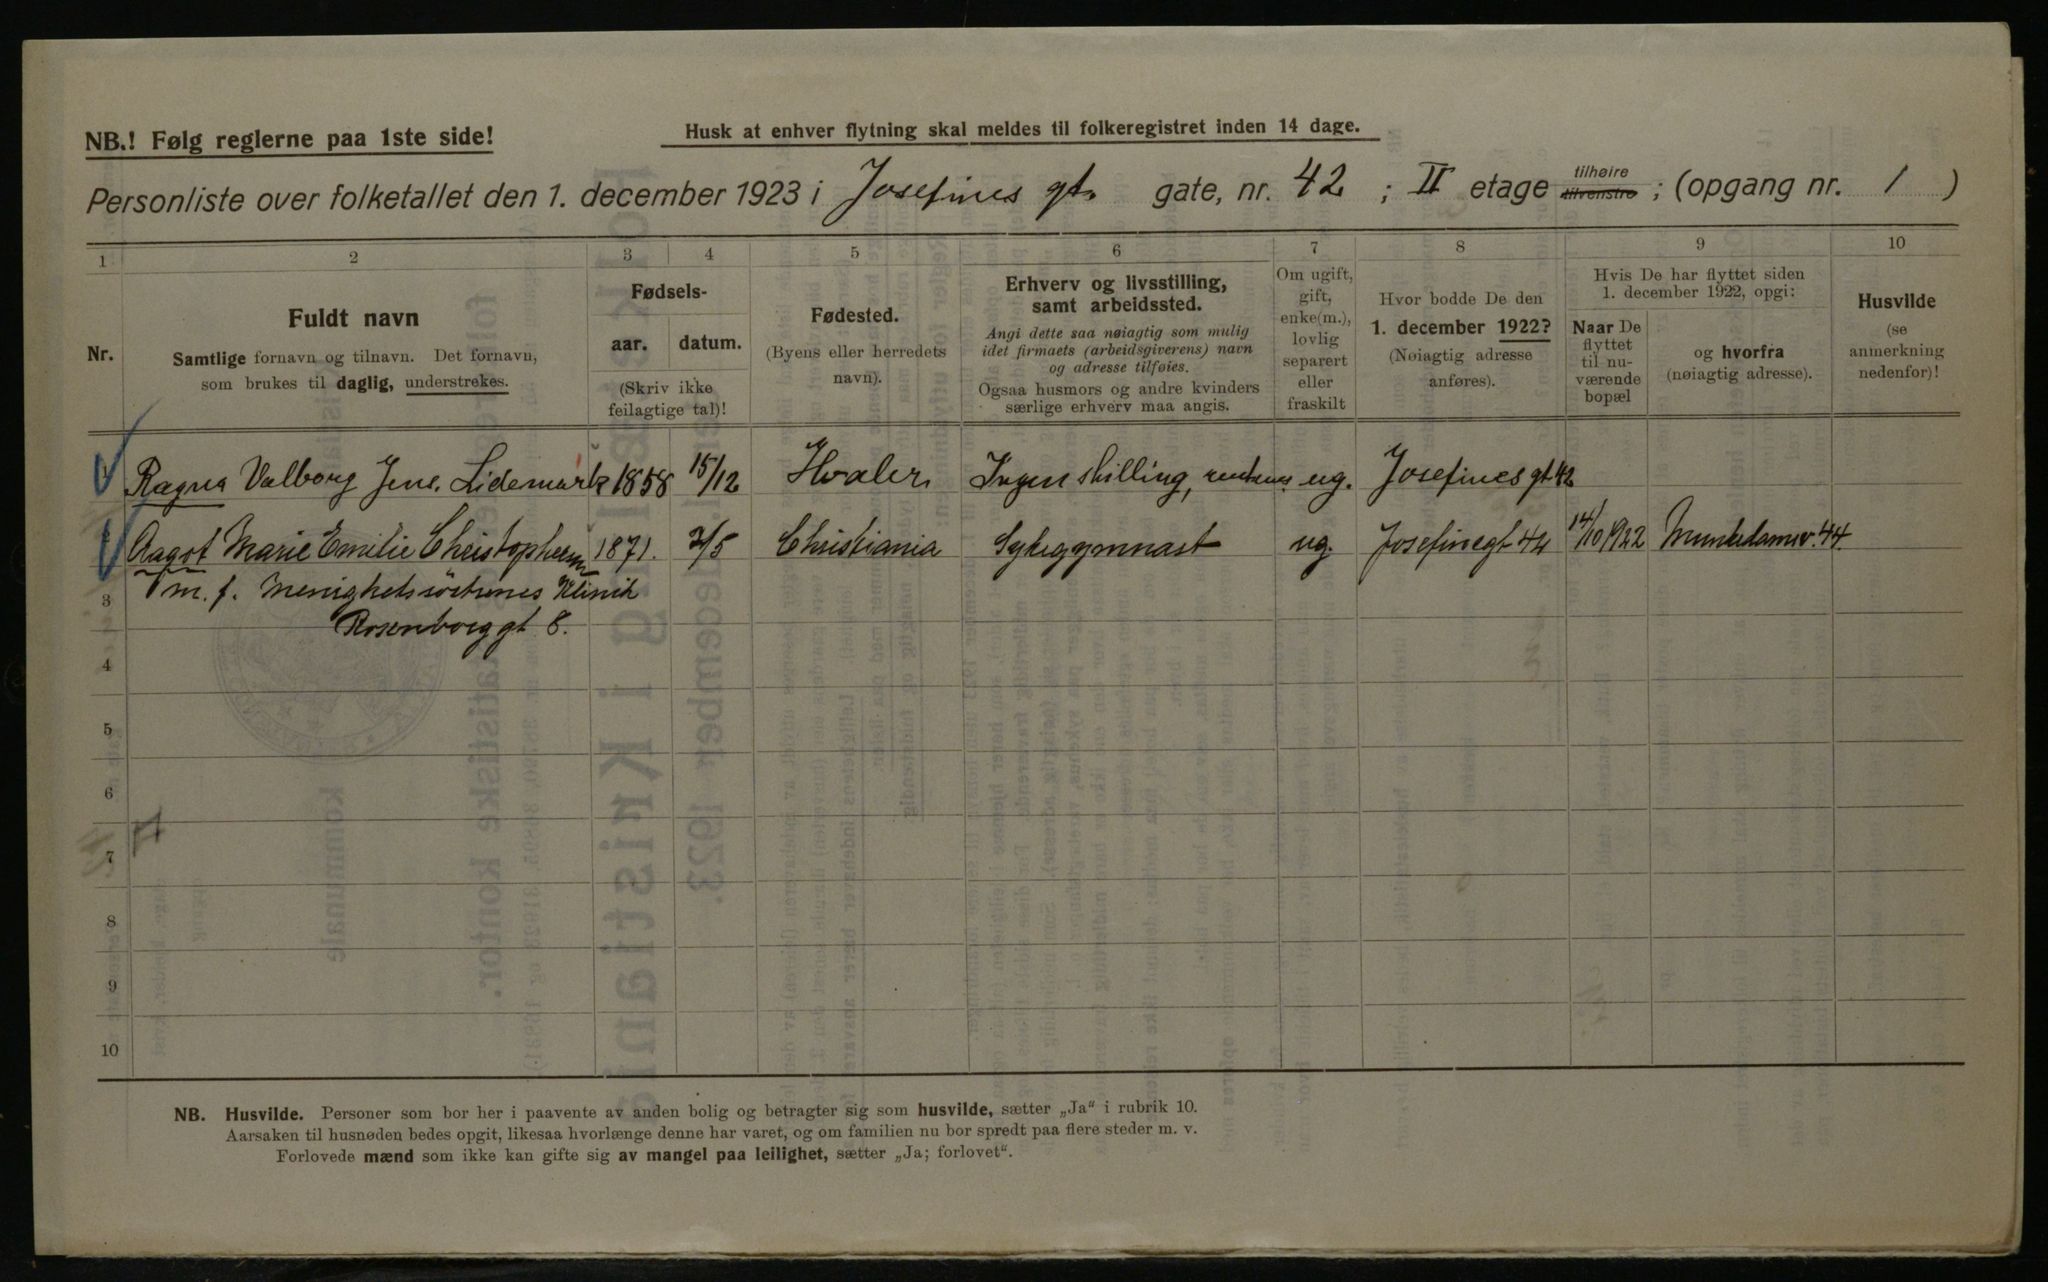 NB.! Følg reglerne paa 1ste side!
Husk at enhver flytning skal meldes til folkeregistret inden 14 dage.
Personliste over folketallet den 1. december 1923 i Josefines gt. gate, nr. 42 ; II etage tilhøire tilvenstre ; (opgang nr. 1 )
1 2 3 4 5 6 7 8 9 10
Nr.
Fuldt navn
Samtlige fornavn og tilnavn. Det fornavn,
som brukes til daglig, understrekes.
Fødsels-
aar. datum.
(Skriv ikke
feilagtige tal)!
Fødested.
(Byens eller herredets
navn).
Erhverv og livsstilling,
samt arbeidssted.
Angi dette saa nøiagtig som mulig
idet firmaets (arbeidsgiverens) navn
og adresse tilføies.
Ogsaa husmors og andre kvinders
særlige erhverv maa angis.
Om ugift,
gift,
enke(m.),
lovlig
separert
eller
fraskilt
Hvor bodde De den
1. december 1922?
(Nøiagtig adresse
anføres).
Hvis De har flyttet siden
1. december 1922, opgi:
Naar De
flyttet
til nu-
værende
bopæl
og hvorfra
(nøiagtig adresse).
Husvilde
(se
anmerkning
nedenfor)!
1 Ragna Valborg Jens. Lidemark 1858 15/12 Hvaler Ingen stilling, ug. Josefines gt 42
2 Aagot Marie Emilie Christophersen 1871. 2/5 Christiania Sykegymnast ug. Josefinegt 42 14/10 1922 Munkedamsv. 44.
3 m. f. Menighetssøstrenes Klinik
Rosenborggt 8.
4
5
6
7
8
9
10
NB. Husvilde. Personer som bor her i paavente av anden bolig og betragter sig som husvilde, sætter „Ja“ i rubrik 10.
Aarsaken til husnøden bedes opgit, likesaa hvorlænge denne har varet, og om familien nu bor spredt paa flere steder m. v.
Forlovede mænd som ikke kan gifte sig av mangel paa leilighet, sætter „Ja; forlovet“.